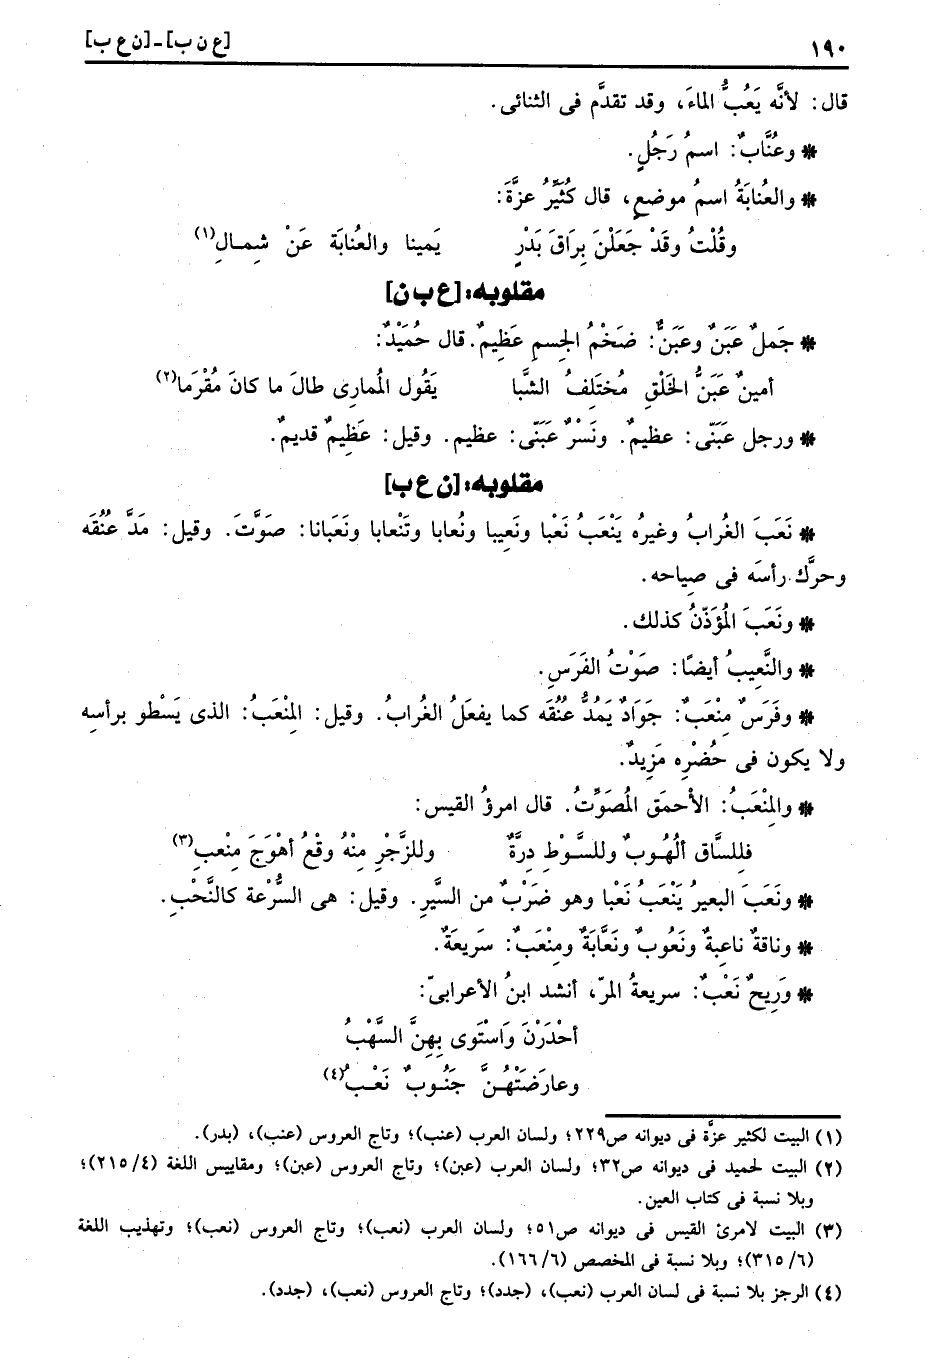 ١٩٠
[ع ن ب] - [ن ع ب]
قال: لأنَّه يَعُبُّ الماءَ، وقد تقدَّم فى الثنائى.
* وعُنَّابٌ: اسمُ رَجُلٍ.
* والعُنابَةُ اسمُ موضعٍ، قال كُثَيِّرُ عزَّةَ:
وقُلْتُ وقَدْ جَعَلْنَ بِرَاقَ بَدْرٍ يَمينا والعُنابَة عَنْ شِمـالِ(١)
مقلوبه: [ع ب ن]
* جَملٌ عَبَنٌ وعَبَنٌّ: ضَخْمُ الجِسمِ عَظِيمٌ. قال حُمَيْدٌ:
أمينٌ عَبَنُّ الخَلْقِ مُختَلِفُ الشَّبا يَقُول المُمارِى طالَ ما كانَ مُقْرَما(٢)
* ورجل عَبَنّى: عظيمٌ. ونَسْرٌ عَبَنّى: عظيم. وقيل: عَظِيمٌ قديمٌ.
مقلوبه: [ن ع ب]
* نَعَبَ الغُرابُ وغيرُه يَنْعَبُ نَعْبا ونَعِيبا ونُعابا وتَنْعابا ونَعَبانا: صَوَّتَ. وقيل: مَدَّ عنُقَه
وحرَّك رأسَه فى صِياحه.
* ونَعَبَ المُؤَذّنُ كذلك.
* والنَّعِيبُ أيضًا: صَوْتُ الفَرَسِ.
* وفَرَسٌ مِنْعَبٌ: جَوَادٌ يَمُدُّ عنُقَه كما يفعَلُ الغُرابُ. وقيل: المِنْعَبُ: الذى يَسْطو برأسِه
ولا يكون فى حُضْرِه مَزِيدٌ.
* والمِنْعَبُ: الأحمَق المُصَوِّتُ. قال امرؤُ القيس:
فلِلسَّاق ألْهُوبٌ وللسَّـوْطِ دِرَّةٌ وللزَّجْرِ مِنْهُ وقْعُ أهْوَجَ مِنْعبِ(٣)
* ونَعَبَ البعيرُ يَنْعَبُ نَعْبا وهو ضَرْبٌ من السَّيرِ. وقيل: هى السُّرْعة كالنَّحْبِ.
* وناقةٌ ناعِبةٌ ونَعُوبٌ ونَعَّابَةٌ ومِنْعَبٌ: سَريعَةٌ.
* وَرِيحٌ نَعْبٌ: سريعةُ المرّ، أنشد ابنُ الأعرابىّ:
أحْدَرْنَ وَاسْتَوى بِهِنَّ السَّهْبُ
وعارَضَتْهُـنَّ جَنُـوبٌ نَعْـبُ(٤)
(١) البيت لكثير عزَّة فى ديوانه ص٢٢٩؛ ولسان العرب (عنب)؛ وتاج العروس (عنب)، (بدر).
(٢) البيت لحميد فى ديوانه ص٣٢؛ ولسان العرب (عبن)؛ وتاج العروس (عبن)؛ ومقاييس اللغة (٤/ ٢١٥)؛
وبلا نسبة فى كتاب العين.
(٣) البيت لامرئ القيس فى ديوانه ص٥١؛ ولسان العرب (نعب)؛ وتاج العروس (نعب)؛ وتهذيب اللغة
(٦/ ٣١٥)؛ وبلا نسبة فى المخصص (٦/ ١٦٦).
(٤) الرجز بلا نسبة فى لسان العرب (نعب)، (جدد)؛ وتاج العروس (نعب)، (جدد).